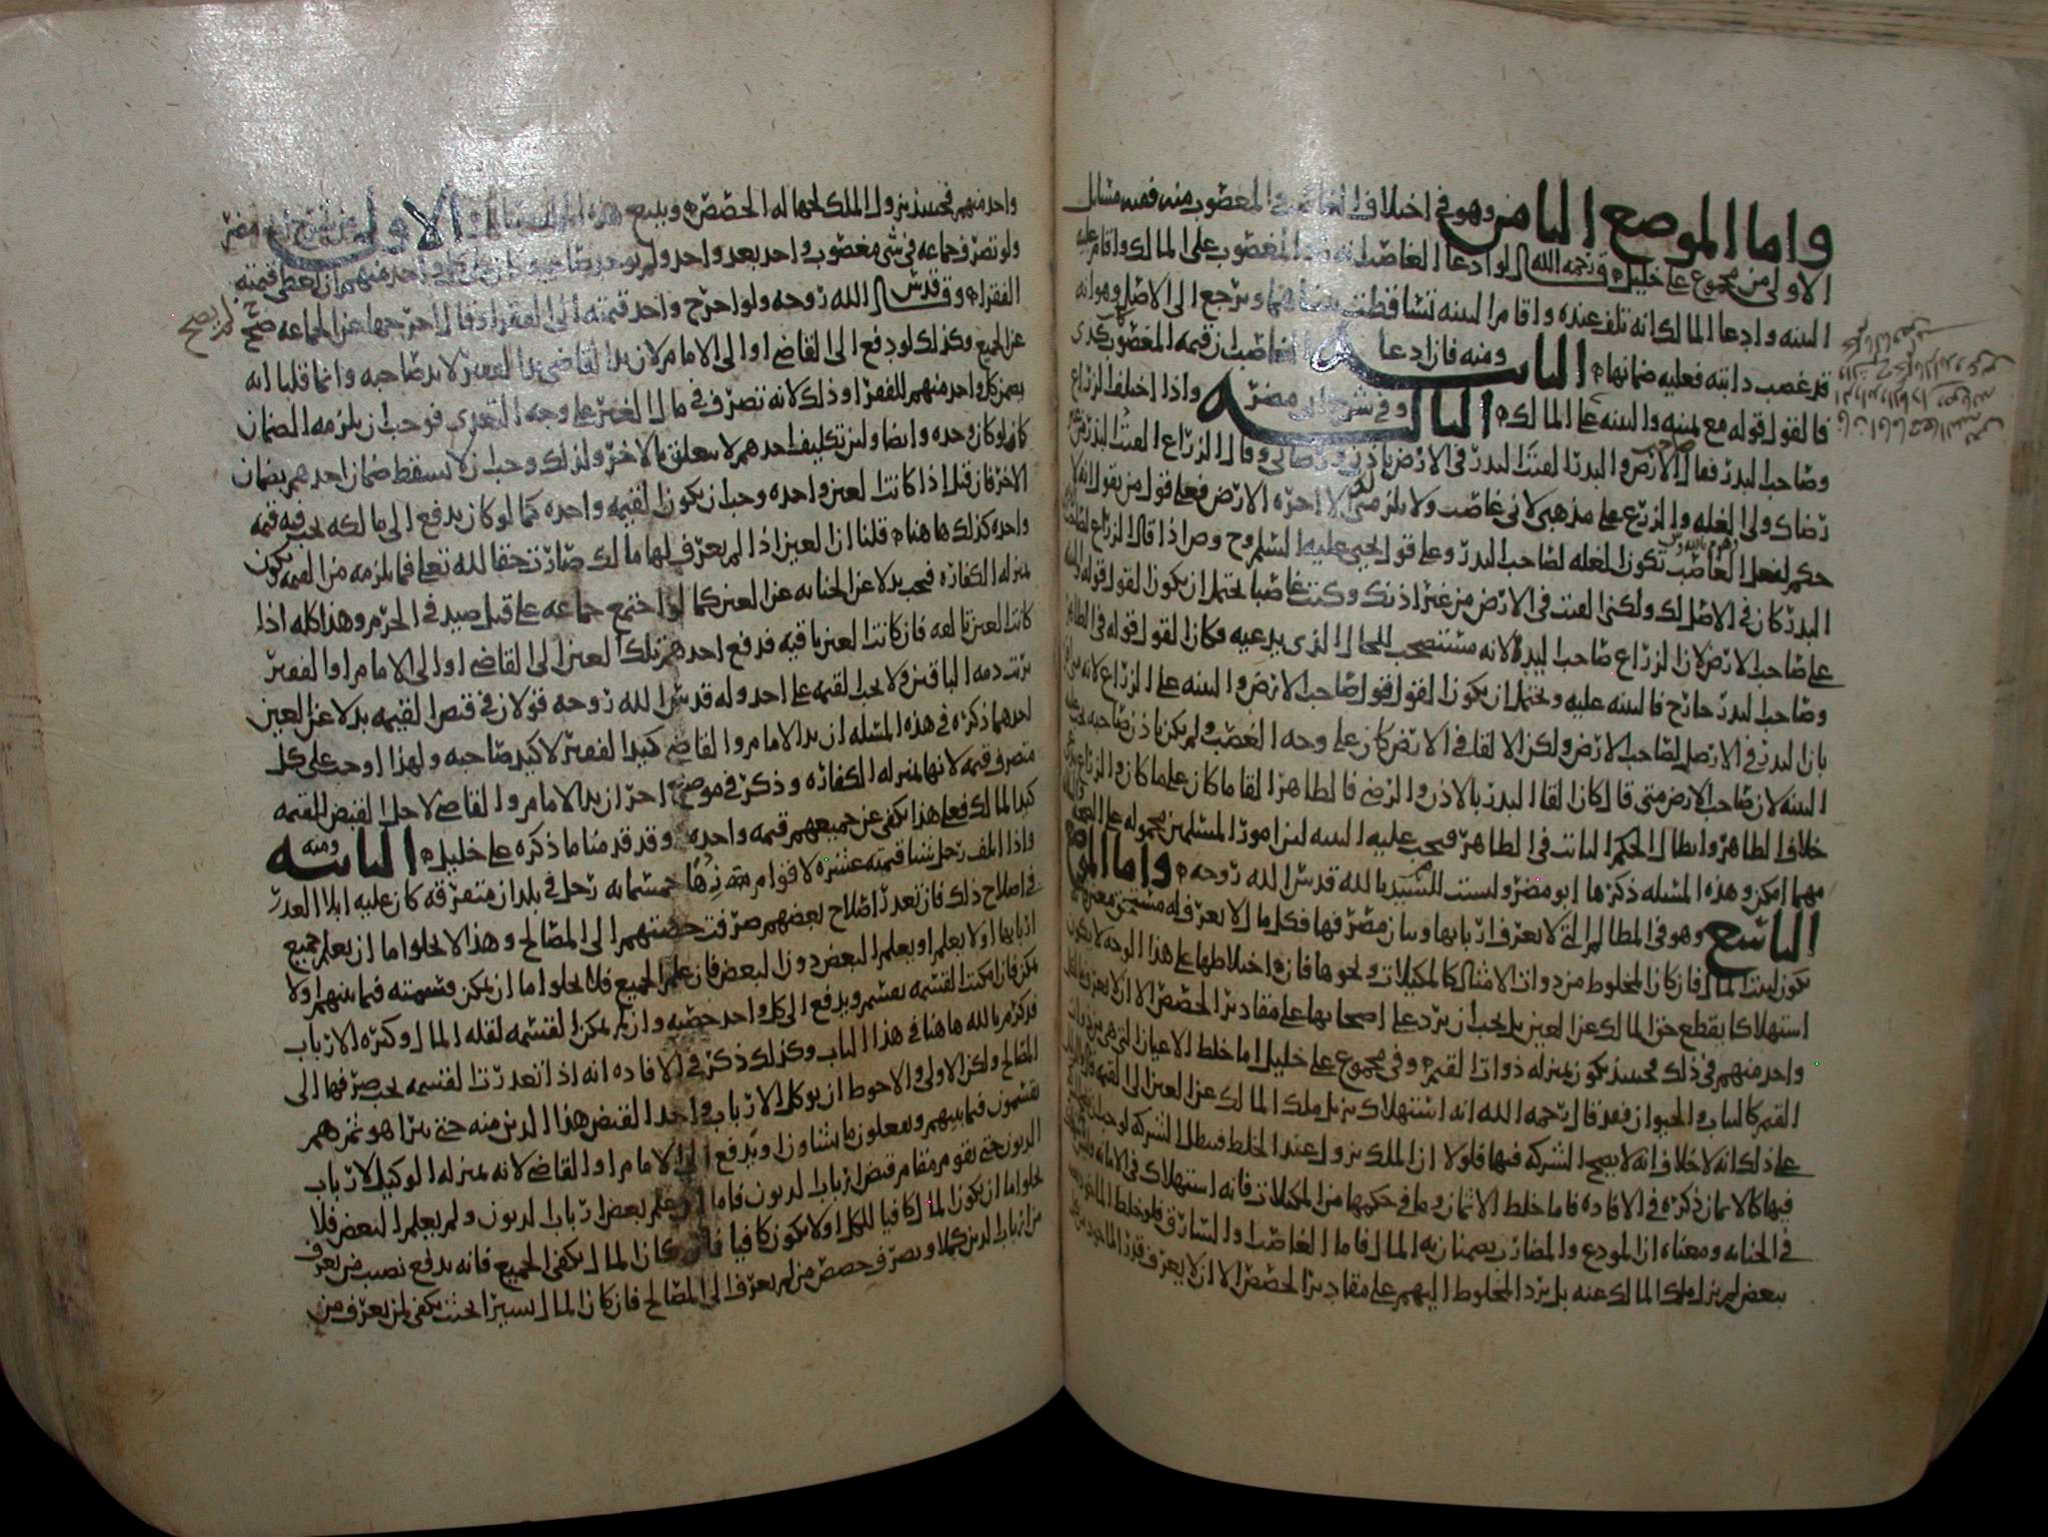 واما الموضع الثامن وهو في اختلاف الغاصب والمغصوب منه ففيه مسائل
الاولى من مجموع علي خليل قال رحمه الله لو ادعا الغاصب انه رد المغصوب على المالك واقام عليه
البينه وادعا المالك انه تلف عنده واقام البينه تساقطت بينتاهما ويرجع الى الاصل وهو انه
قد غصب دابته فعليه ضمانها الثانيه ومنه فان ادعا الغاصب ان قيمه المغصوب كذى
فالقول قوله مع يمينه والبينه على المالك الثالثه وفي شرح ابي مضر واذا اختلف الزراع
وصاحب البذر فقال صاحب الارض والبذر القيت البذر في الارض باذني ورضائي وقال الزراع القيت البذر من غير
رضاك ولي الغله والزرع على مذهبي لاني غاصب ولا يلزمني لك الا اجره الارض فعلى قول من يقول انه لا
حكم لفعل الغاصب تكون الغله لصاحب البذر وعلى قول يحيى عليه السلم وح وص اذا قال الزراع لصاحب
البذر كان في الاصل لك ولكني القيت في الارض من غير اذنك وكنت غاصبا يحتمل ان يكون القول قوله والبينه
على صاحب الارض لان الزراع صاحب اليد ولانه مستصحب للحال الذي يدعيه فكان القول قوله في الظاهر
وصاحب البذر خارج فالبينه عليه ويحتمل ان يكون القول قول صاحب الارض والبينه على الزراع لانه
بان البذر في الاصل لصاحب الارض ولكن الالقا في الارض كان على وجه الغصب ولم يكن باذن صاحبه يجب عليه
البينه لان صاحب الارض متى قال كان القا البذر بالاذن والرضى فالظاهر القا ما كان على ما كان والزراع
خلاف الظاهر وابطال الحكم الثابت في الظاهر فيجب عليه البينه لان امور المسلمين محموله على الصحه
مهما امكن وهذه المسله ذكرها ابو مضر وليست للسيد يا لله قدس الله روحه واما الموضع
التاسع وهو في المظالم التي لا يعرف اربابها وبيان مصرفها فكل مال لا يعرف له مستحق معين
يكون لبيت المال فان كان المخلوط من ذوات الامثال كالمكيلات ونحوها فان اختلاطها على هذا الوجه لا يكون
استهلاكا يقطع حق المالك عن العين بل يجب ان يرد على اصحابها على مقادير الحصص الا ان لا يعرف
واحد منهم في ذلك فحينئذ يكون بمنزله ذوات القيم وفي مجموع علي خليل اما خلط الاعيان التي هي من ذوات
القيم كالثياب والحيوان فقد قال رحمه الله انه استهلاك يزيل ملك المالك عن العين الى القيمه
على ذلك انه لا خلاف انه لا يصح الشركه فيها فلولا ان الملك يزول عند الخلط فبطل الشركه لوجب
فيها كالاثمان ذكره في الافاده فاما خلط الاثمان وما في حكمها من المكيلات فانه استهلاك في الامانه
في الجنايه ومعناه ان المودع والمضارب يضمنان به المال فاما الغاصب والسارق فلو خلط المال
ببعض لم يزل ملك المالك عنه بل يرد المخلوط اليهم على مقادير الحصص الا ان لا يعرف قدر المال
واحد منهم فحينئذ يزول الملك لجهاله الحصص ويتبع هذه المسائل الاولى من شرح ابي مضر
ولو تصرف جماعه في شي مغصوب واحد بعد واحد ولم يوجد صاحبه كان على كل واحد منهم ان يعطي قيمته
الفقرا وقال قدس الله روحه ولو اخرج واحد قيمته الى الفقرا وقال اخرجتها عن الجماعه صح
لم يصح
عن الجميع وكذلك لو دفع الى القاضي او الى الامام لان يد القاضي يد الفقير لا يد صاحبه وانما قلنا انه
يضمن كل واحد منهم للفقرا وذلك لانه تصرف في مال الغير على وجه التعدي فوجب ان يلزمه الضمان
كما لو كان وحده وايضا وليس تكليف احدهم لا يتعلق بالاخر ولذلك وجب ان لا يسقط ضمان احدهم بضمان
الاخر فان قيل اذا كانت العين واحده وجب ان يكون القيمه واحده كما لو كان يدفع الى مالكه يجب فيه قيمه
واحده كذلك ها هنا قلنا ان العين اذا لم يعرف لها مالك صارت حقا لله تعلى فما يلزمه من القيمه يكون
بمنزله الكفاره فيجب بدلا عن الجنايه عن العين كما لو اجتمع جماعه على قتل صيد في الحرم وهذا كله اذا
كانت العين تالفه فان كانت العين باقيه فدفع احدهم تلك العين الى القاضي او الى الامام او الفقير
برئت ذمه الباقين ولا يجب القيمه على احد وله قدس الله روحه قولان في قبض القيمه بدلا عن العين
احدهما ذكره في هذه المسله ان يد الامام والقاضي كيد الفقير لا كيد صاحبه ولهذا اوجب على كل
متصرف قيمه لانها بمنزله الكفاره وذكر في موضع اخر ان يد الامام والقاضي لاجل القبض للقيمه
كيد المالك فعلى هذا يكفي عن جميعهم قيمه واحده وقد قدمنا ما ذكره علي خليل الثانيه ومنه
واذا اتلف رجل شيا قيمته عشره لاقوام خمسمايه رجل في بلدان متفرقه كان عليه ابلا العذر
في اصلاح ذلك فان تعذر اصلاح بعضهم صرفت حصتهم الى المصالح وهذا لا يخلوا اما ان يعلم جميع
اربابها او لا يعلم او يعلم البعض دون البعض فان علم الجميع فلا يخلوا اما ان يمكن قسمته فيما بينهم او لا
يمكن فان امكنت القسمه تقسم ويدفع الى كل واحد حصته وان لم يمكن القسمه لقله المال وكثره الارباب
فذكر م بالله ها هنا في هذا الباب وكذلك ذكر في الافاده انه اذا تعذرت القسمه يجب صرفها الى
المصالح ولكن الاولى والاحوط ان يوكل الارباب واحدا لقبض هذا الدين منه حتى يبرا هو ثم هم
يقتسمون فيما بينهم ويفعلون ما يشاون او يدفع الى الامام او القاضي لانه بمنزله الوكيل لارباب
الديون حتى يقوم مقام قبض ارباب الديون فاما اذا علم بعض ارباب الديون ولم يعلم البعض فلا
يخلوا اما ان يكون المال كافيا للكل او لا يكون كافيا فان كان المال يكفي الجميع فانه يدفع نصيب من يعرف
من ارباب الدين كملا ويصرف حصص من لم يعرف الى المصالح فان كان المال يسيرا بحيث يكفي لمن يعرف من